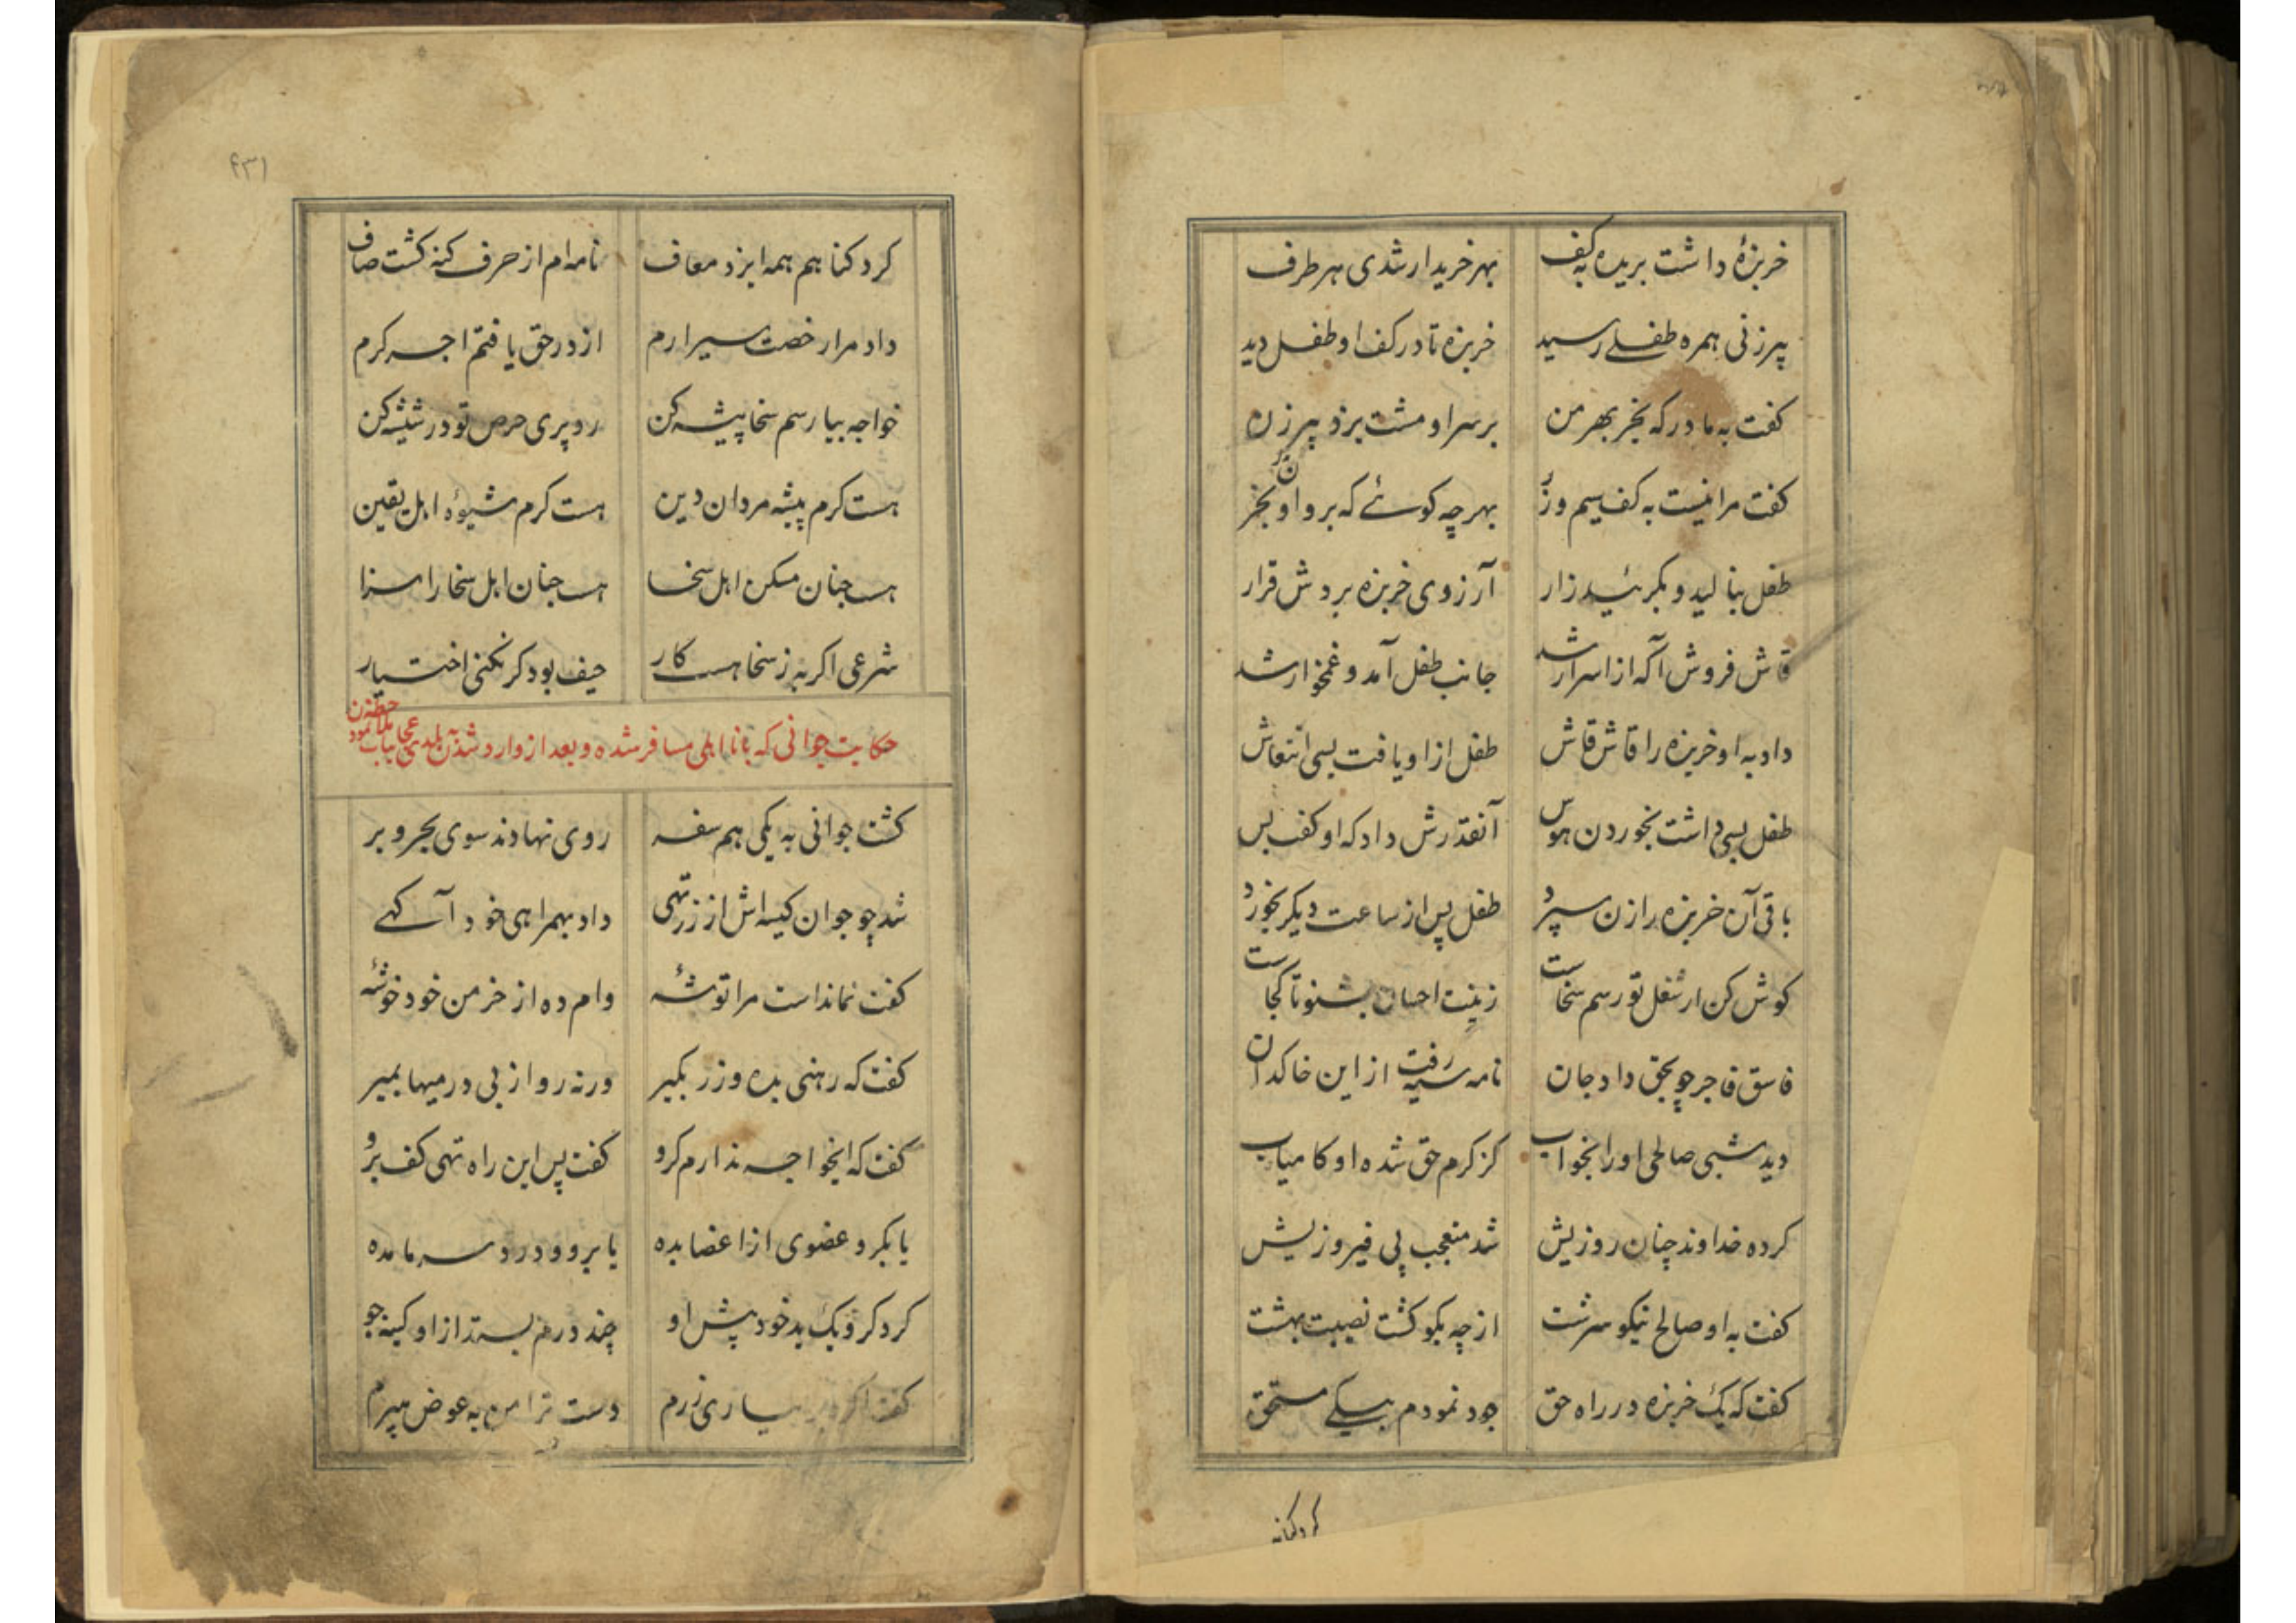 خربزهٔ داشت بریده به کف بهر خریدار شدی هر طرف
پیرزنی همره طفلے رسید خربزه تا در کف او طفل دید
کفت به مادر که بخر بهر من بر سر او مشت بزد پیرزن
کفت مرا نیست به کف سیم و زر بهر چه کوئے که برو اون بخر
طفل بنالید و بکرئید زار آرزوی خربزه بردش قرار
قاش فروش آکه از اسرار شد جانب طفل آمد و غمخوار شد
داد به او خربزه را قاش قاش طفل از او یافت بسی انتعاش
طفل بسی داشت بخوردن هوس آنقدرش داد که او کفت بس
باقی آن خربزه را زن سپرد طفل پس از ساعت دیکر بخورد
کوش کن ار شغل تو رسم سخاست زینت احسان بشنو تا کجاست
فاسق فاجر چو بحق داد جان نامه سیه رفت از این خاکدان
دید شبی صالحی او را بخواب کز کرم حق شده او کامیاب
کرده خداوند چنان روزیش شد متعجب پی فیروزیش
کفت به او صالح نیکو سرشت از چه بکو کشت نصیبت بهشت
کفت که یک خربزه در راه حق جود نمودم بیکے مستحق
کرد کناهم
۴۳۱
کرد کناهم همه ایزد معاف نامه‌ام از حرف کنه کشت صاف
داد مرا رخصت سیر ارم از در حق یافتم اجر کرم
خواجه بیا رسم سخا پیشه کن رو پری حرص تو در شیشه کن
هست کرم پیشه مردان دین هست کرم شیوهٔ اهل یقین
هست جنان مسکن اهل سخا هست جنان اهل سخا را سزا
شرعی اکر به ز سخا هست کار حیف بود کر نکنی اختیار
حکایت جوانی که با نااهلی مسافر شده و بعد از وارد شدن به بلدی عجایب نمود
کشت جوانی به یکی هم سفر روی نهادند سوی بحر و بر
شد چو جوان کیسه‌اش از زر تهی داد بهمراهی خود آکهے
کفت نمانداست مرا توشهٔ وام ده از خرمن خود خوشهٔ
کفت که رهنی بده و زر بکیر ورنه رو از بی درمیها بمیر
کفت که ایخواجه ندارم کرو کفت پس این راه تهی کف برو
یا بکرو عضوی از اعضا بده یا برو و درد سر ما مده
کرد کرو یک ید خود پیش او چند درم بستد از او کینه جو
کفت اکر سیاری زرم دست ترا من به عوض میبرم